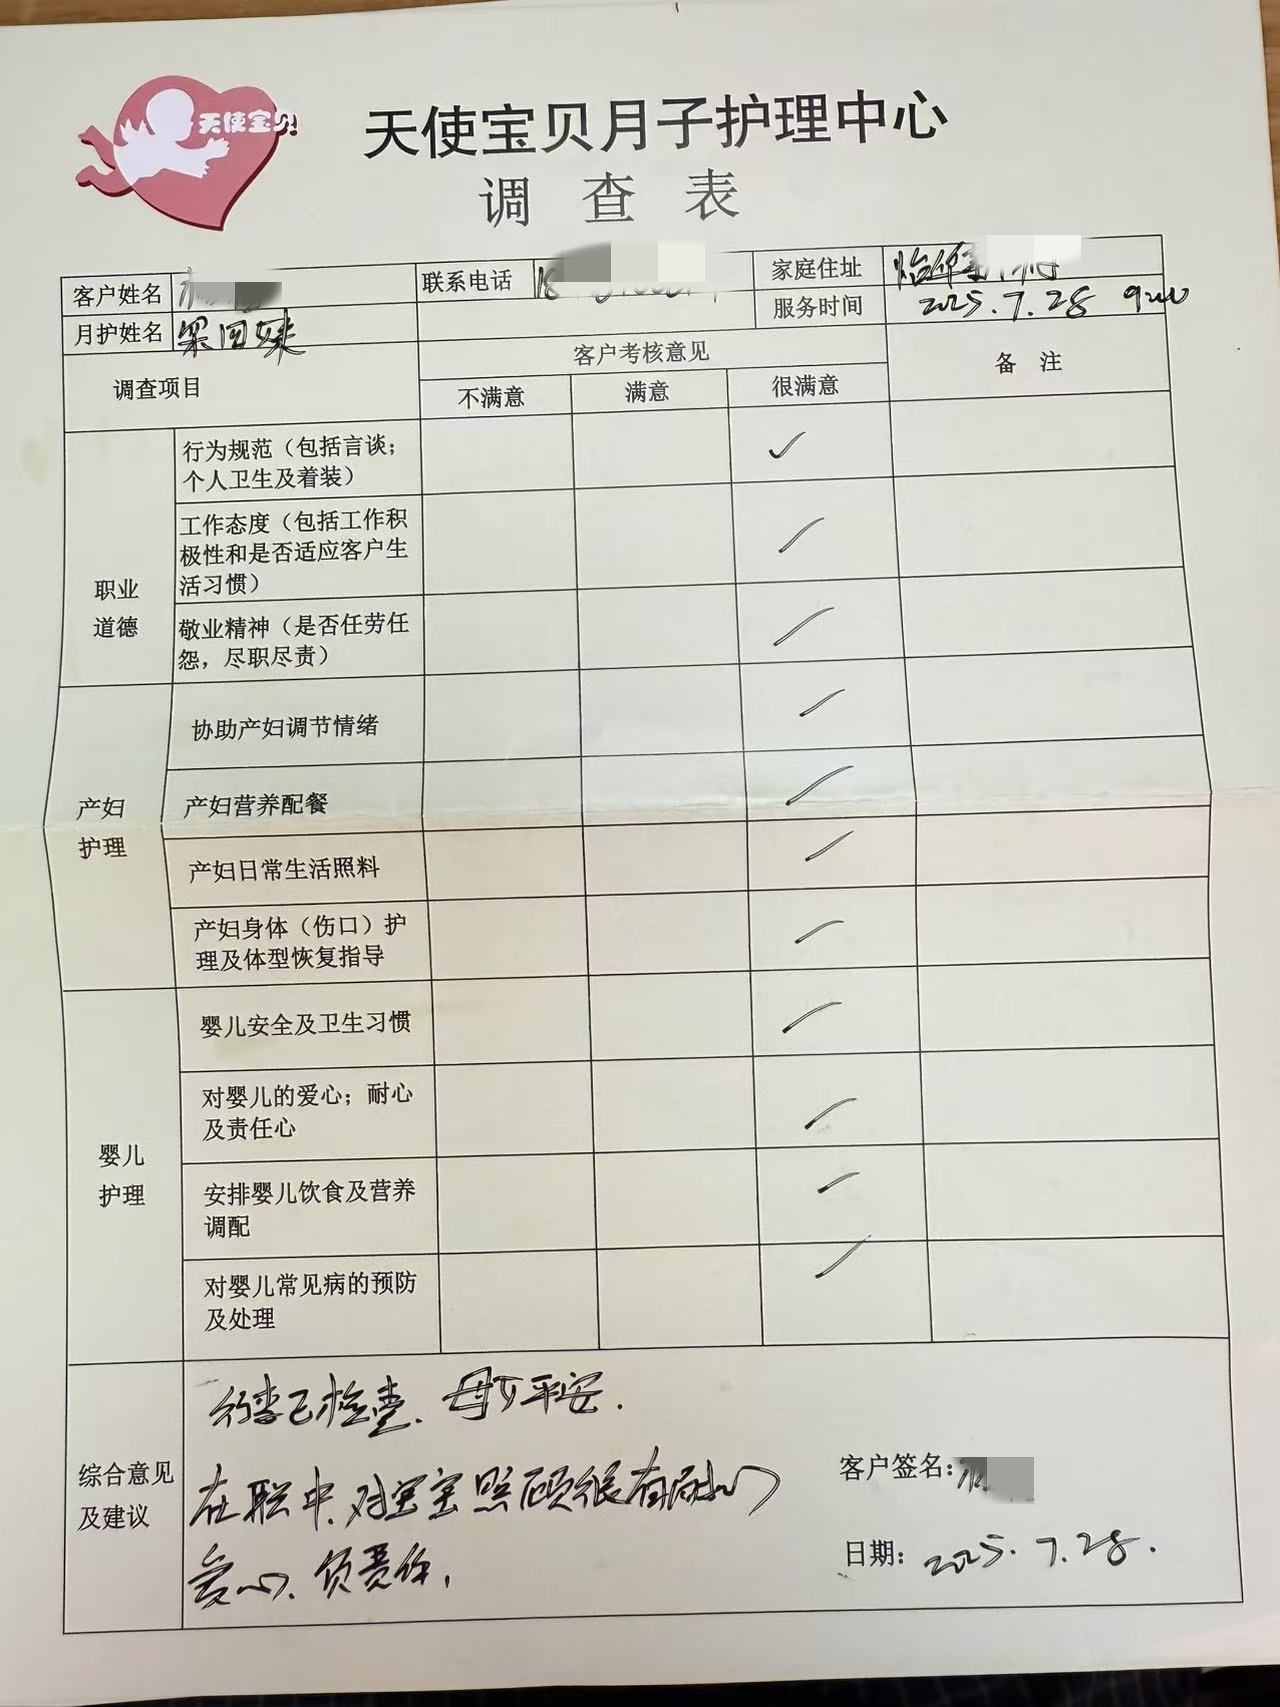 天使宝贝
天使宝贝月子护理中心
调查表
客户姓名 联系电话 家庭住址 怡华
月护姓名 梁回妹 服务时间 2025.7.28
调查项目 客户考核意见 备注
不满意 满意 很满意
职业
道德
行为规范（包括言谈；
个人卫生及着装）
工作态度（包括工作积
极性和是否适应客户生
活习惯）
敬业精神（是否任劳任
怨，尽职尽责）
产妇
护理
协助产妇调节情绪
产妇营养配餐
产妇日常生活照料
产妇身体（伤口）护
理及体型恢复指导
婴儿
护理
婴儿安全及卫生习惯
对婴儿的爱心；耐心
及责任心
安排婴儿饮食及营养
调配
对婴儿常见病的预防
及处理
综合意见
及建议
行李已检查、母子平安.
在职中、对宝宝照顾很有耐心
爱心、负责任,
客户签名：
日期： 2025.7.28.